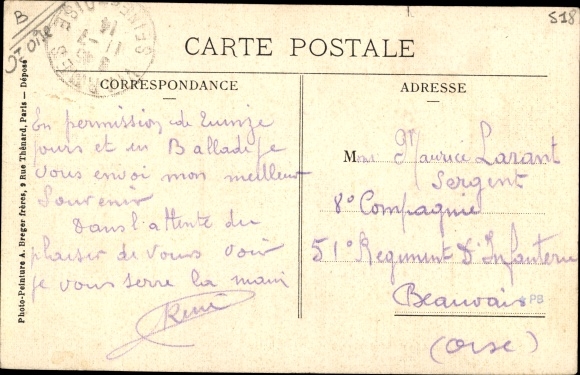 B
St oise
518
SEINE-ET-OISE
CARTE POSTALE
CORRESPONDANCE
ADRESSE
Photo-Peinture A. Breger frères, 9 Rue Thénard, Paris — Déposé
En permission de quinze
jours et en Ballade je
vous envoi mon meilleur
Souvenir
Dans l'attente du
plaisir de vous voir
je vous serre la main
René
M Maurice Larant
Sergent
8° Compagnie
51° Regiment d'Infanterie
Beauvais
PB
(Oise)